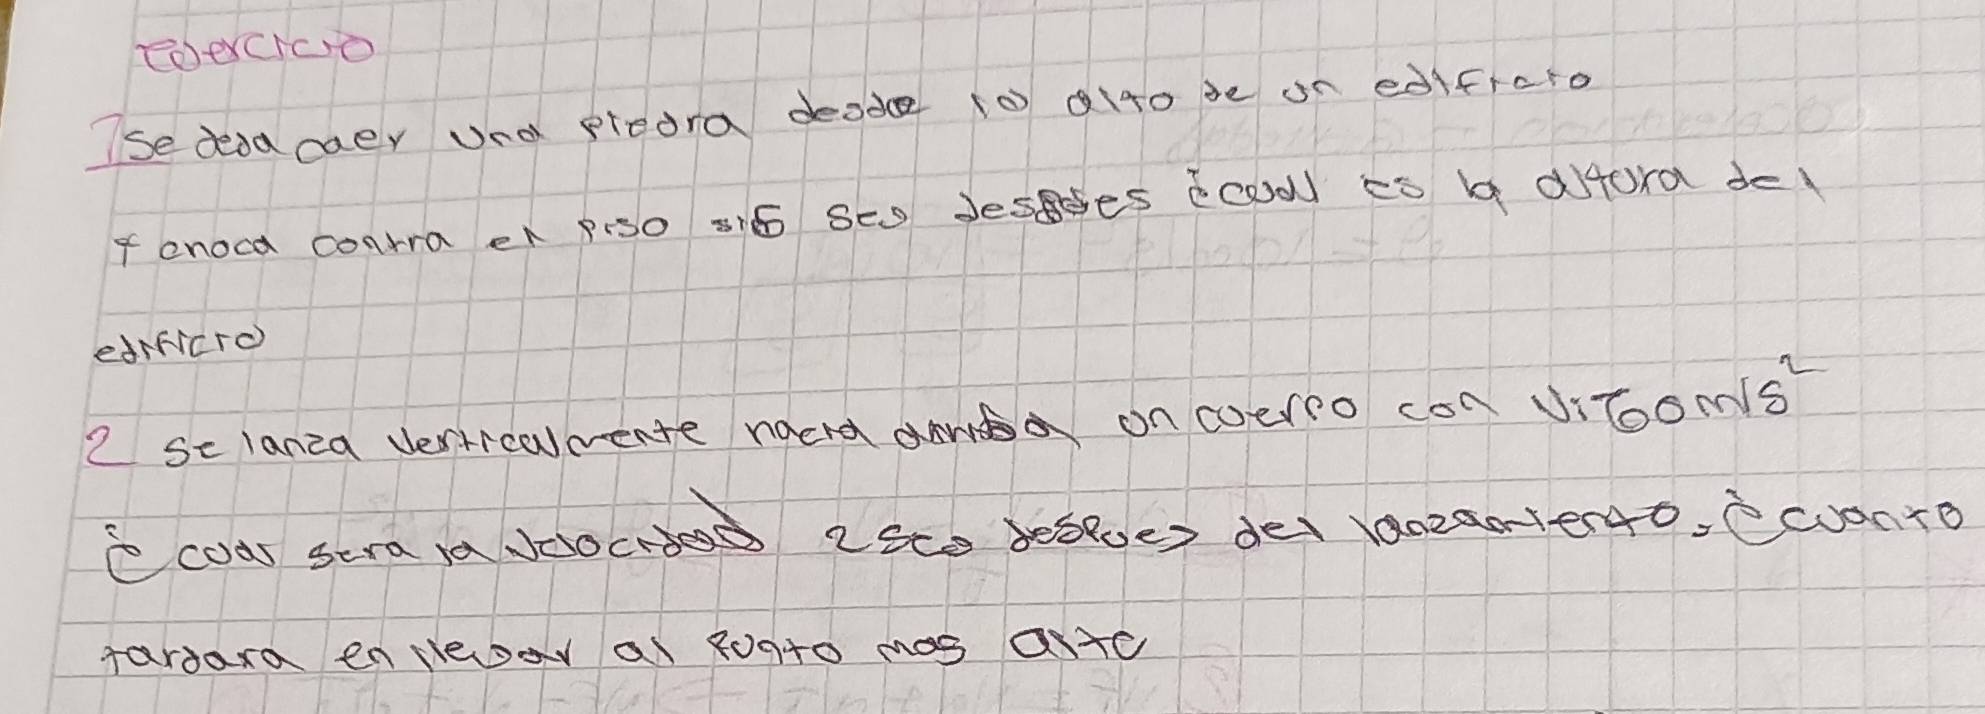 Ejercicio
1 se deja caer una piedra desde lo alto de un edificio
y choca contra el piso 6 seg despues ¿cual es la altura del
edificio
2 se lanza verticalmente hacia arriba un cuerpo con Vi 60 m/s²
¿cual sera la velocidad 2 seg despues del lanzamiento, ¿cuanto
tardara en llegar al punto mas alto